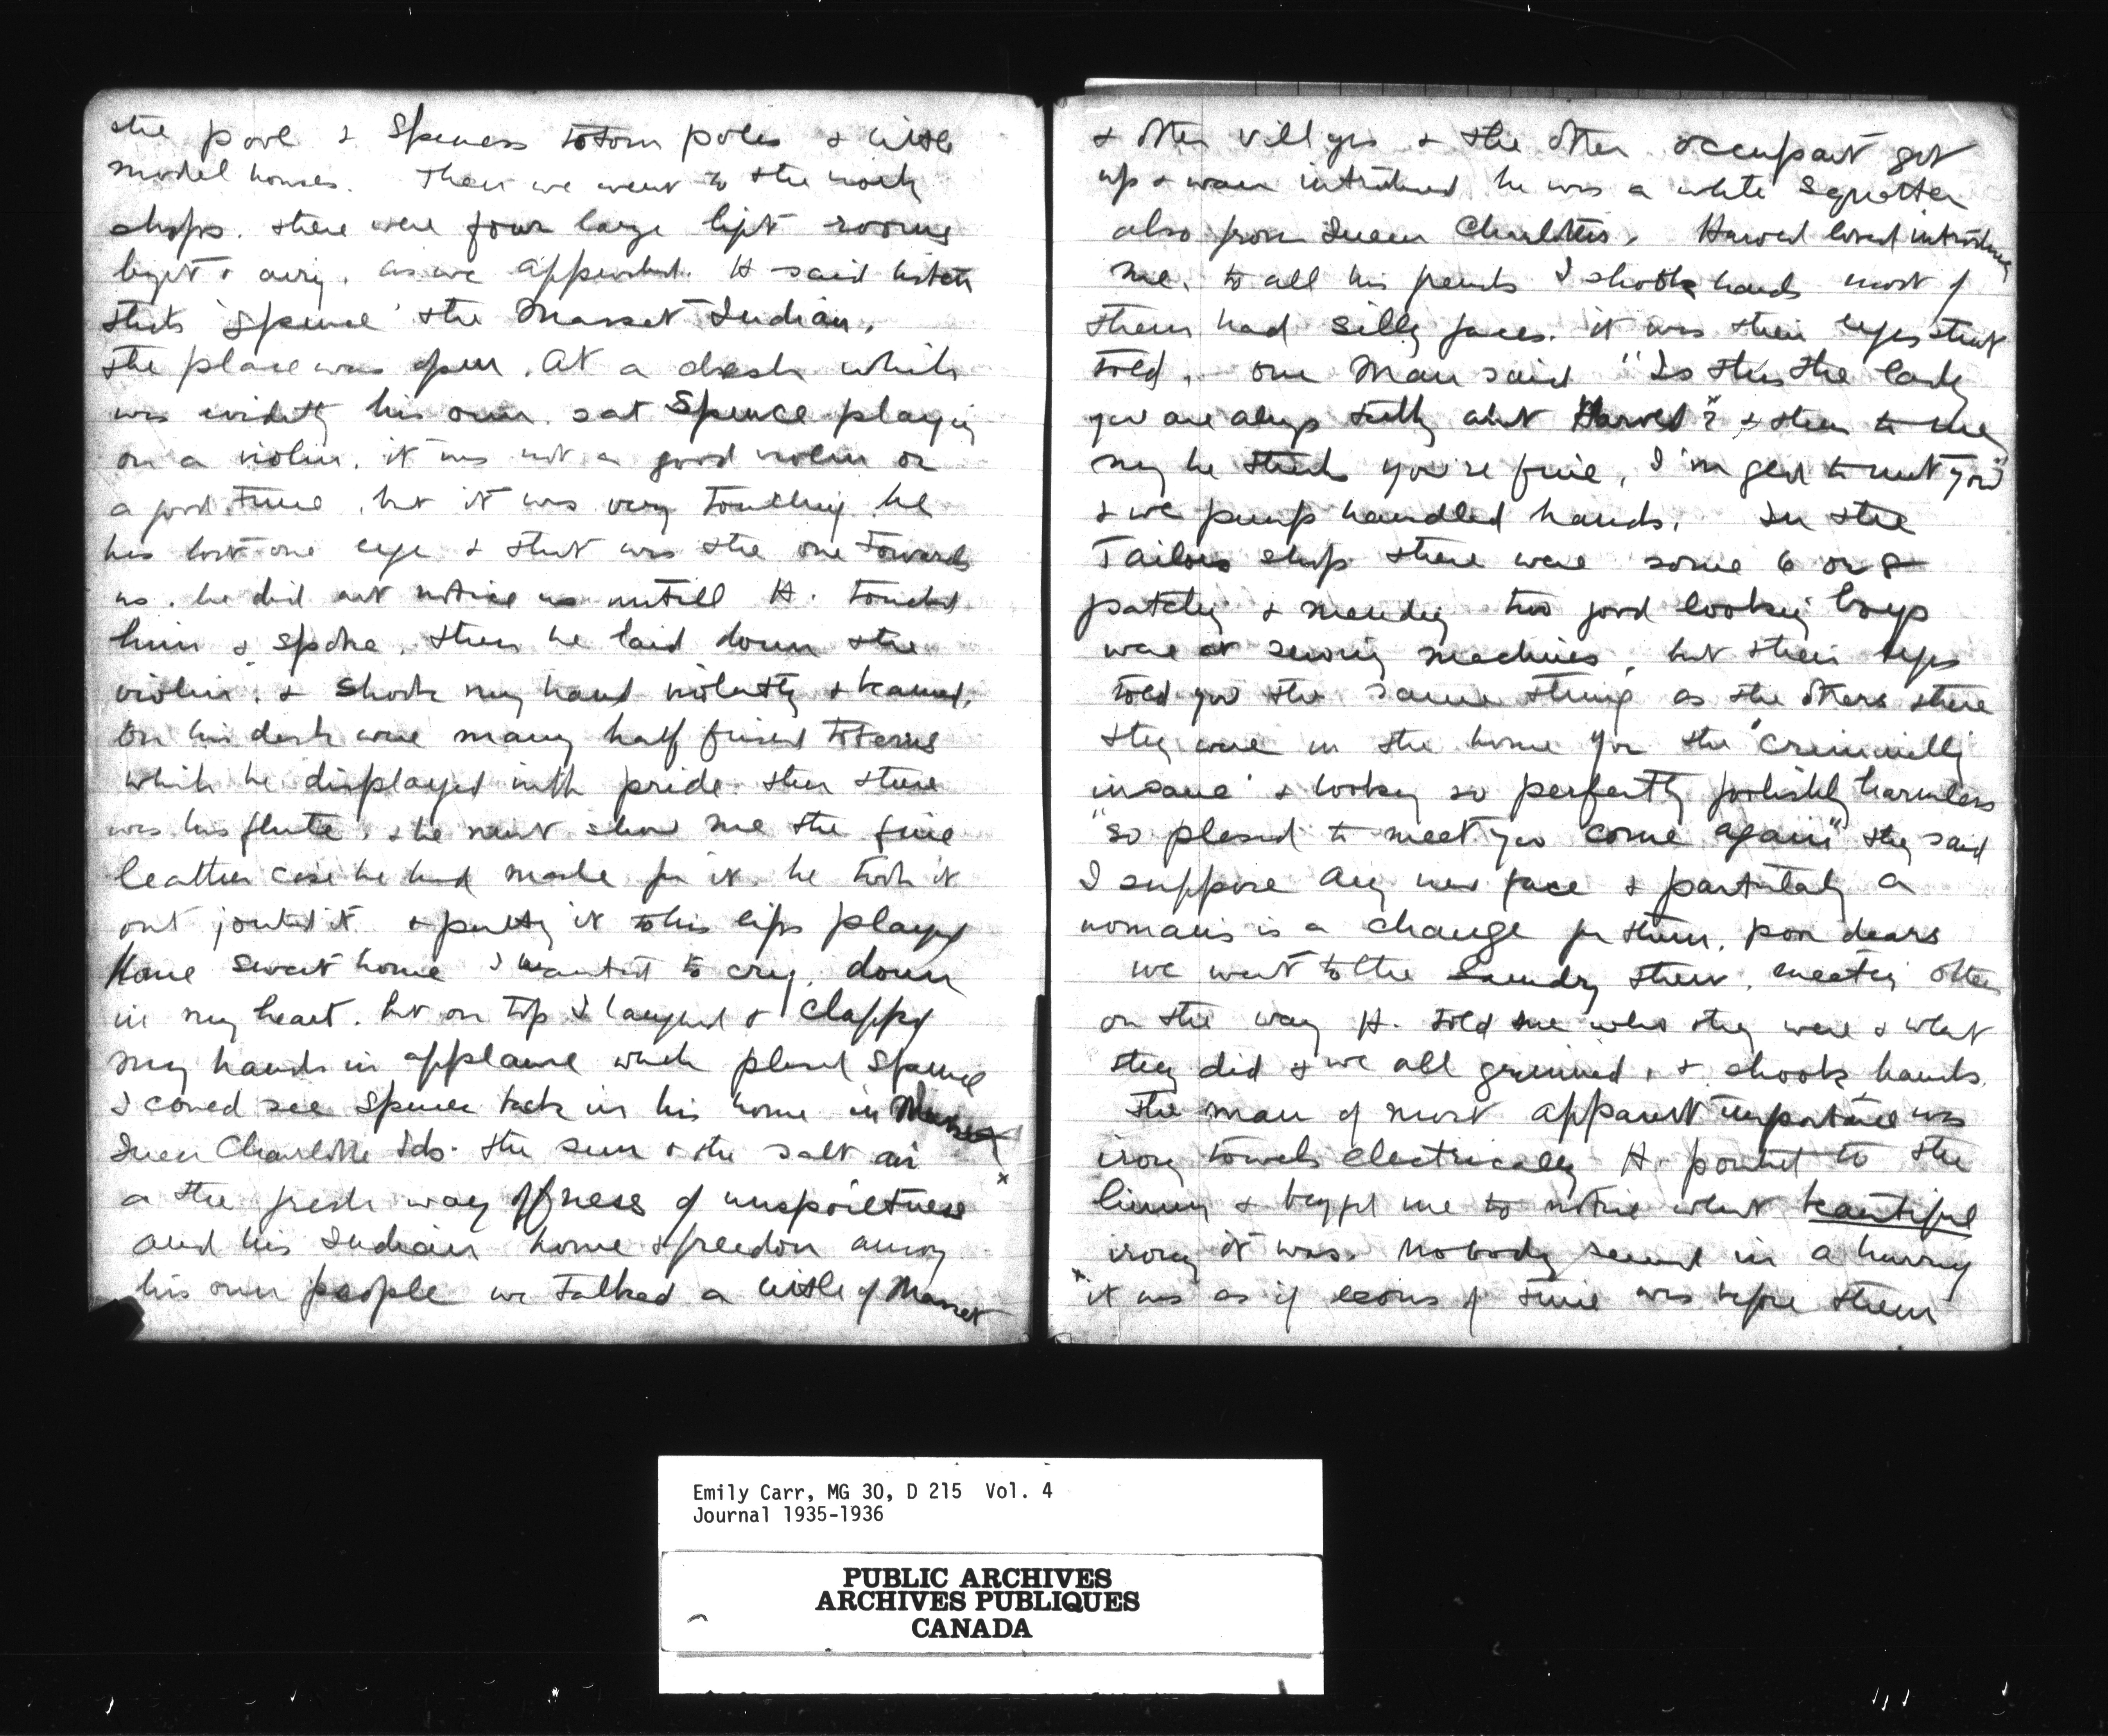 the pool & Spences totom poles & little
model houses. Then we went to the work
shops. there were four large light rooms
bright & airy. as we approached. H said listen
thats 'Spence' the Masset Indian.
the place was open. At a desk which
was evidently his own. sat Spence playing
on a violin. it was not a good violin or
a good tune, but it was very touching he
has lost one eye & that was the one towards
us. he did not notice us untill H. touched
him & spoke. then he laid down the
violin. & shook my hand violently & beamed.
On his desk were many half finised totems
which he displayed with pride. then there
was his flute, & he must show me the fine
leather case he had made for it. he took it
out jointed it & putting it to his lips played
Home sweet home I wanted to cry. down
in my heart. but on top I laughed & clapped
my hands in applause which plesed Spence
I coued see Spence back in his home in Masset
Queen Charlotte Ids. the sun & the salt air
a the fresh way offness of unspoiltness
and his Indian home & freedom among
his own people we talked a little of Masset
& other villiges & the other occupant got
up & was introduced he was a white squatter
also from Queen Charlottes. Harold loved introducing
me. to all his friends I shook hands most of
them had silly faces. it was their eyes that
told. one man said "Is this the lady
you are always talking about Harold"? & then to me
my he thinks you're fine, I'm glad to meet you"
& we pump handled hands. In the
Tailors shop there were some 6 or 8
patching & mending two good looking boys
were at sewing machines, but their eyes
told you the same thing as the others there
they were in the home for the 'criminilly
insane' & looking so perfectly foolishly harmless
"so plesed to meet you come again" they said
I suppose any new face & particulaly a
womans is a change for them. poor dears
we went to the laundry then. meeting others
on the way H. told me who they were & what
they did & we all grinned, & shook hands.
the man of most apparent importance was
irong towels electrically H. pointed to the
linen & begged me to notice what beautiful
irong it was. Nobody seemed in a hurry
it was as if eeons of time was before them
Emily Carr, MG 30, D 215 Vol. 4
Journal 1935-1936
PUBLIC ARCHIVES
ARCHIVES PUBLIQUES
CANADA